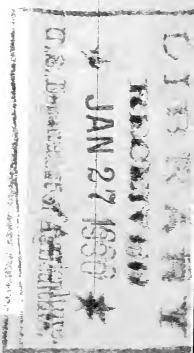 LIBRARY
RECEIVED
★ JAN 27 1930 ★
U.S. Department of Agriculture.